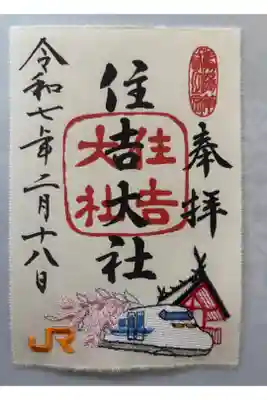 奉拝
住吉大社
住吉大社
令和七年二月十八日
JR